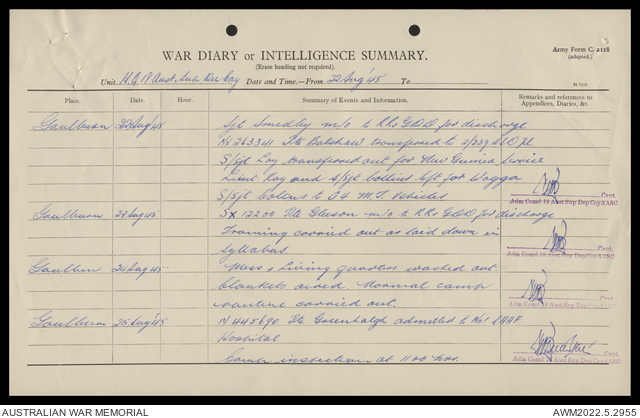 Army Form C. 2118
(adapted.)
WAR DIARY or INTELLIGENCE SUMMARY.
(Erase heading not required).
Unit H.Q. 18 Aust Sub Dep Coy Date and Time.—From 22 Aug '45 To
Place. Date. Hour. Summary of Events and Information. Remarks and references to Appendices, Diaries, &c.
Goulburn 22 Aug '45 Sjt Smedley m/o to RRs GDD for discharge
Nx 263341 Pte Batshaw transferred to 2/339 Pl
S/Sjt Loy transferred out for New Guinea Service
Lieut Roy and S/Sjt Collins left for Wagga
S/Sjt Collins to M.T. Vehicles
Capt.
Adm Comd 18 Aust Sup Dep Coy AASC
Goulburn 23 Aug '45 Sx 12200 Pte Gleeson m/o to RRs GDD for discharge
Training carried out as laid down in
Syllabus.
Capt.
Adm Comd 18 Aust Sup Dep Coy AASC
Goulburn 24 Aug '45 Mess & living quarters washed out.
blankets aired Normal camp
routine carried out.
Capt.
Adm Comd 18 Aust Sup Dep Coy AASC
Goulburn 25 Aug '45 N 445690 Pte Greenhalgh admitted to No 1 RAAF
Hospital
Camp inspection at 1100 hrs.
Capt.
Adm Comd 18 Aust Sup Dep Coy AASC
AUSTRALIAN WAR MEMORIAL AWM2022.5.2955